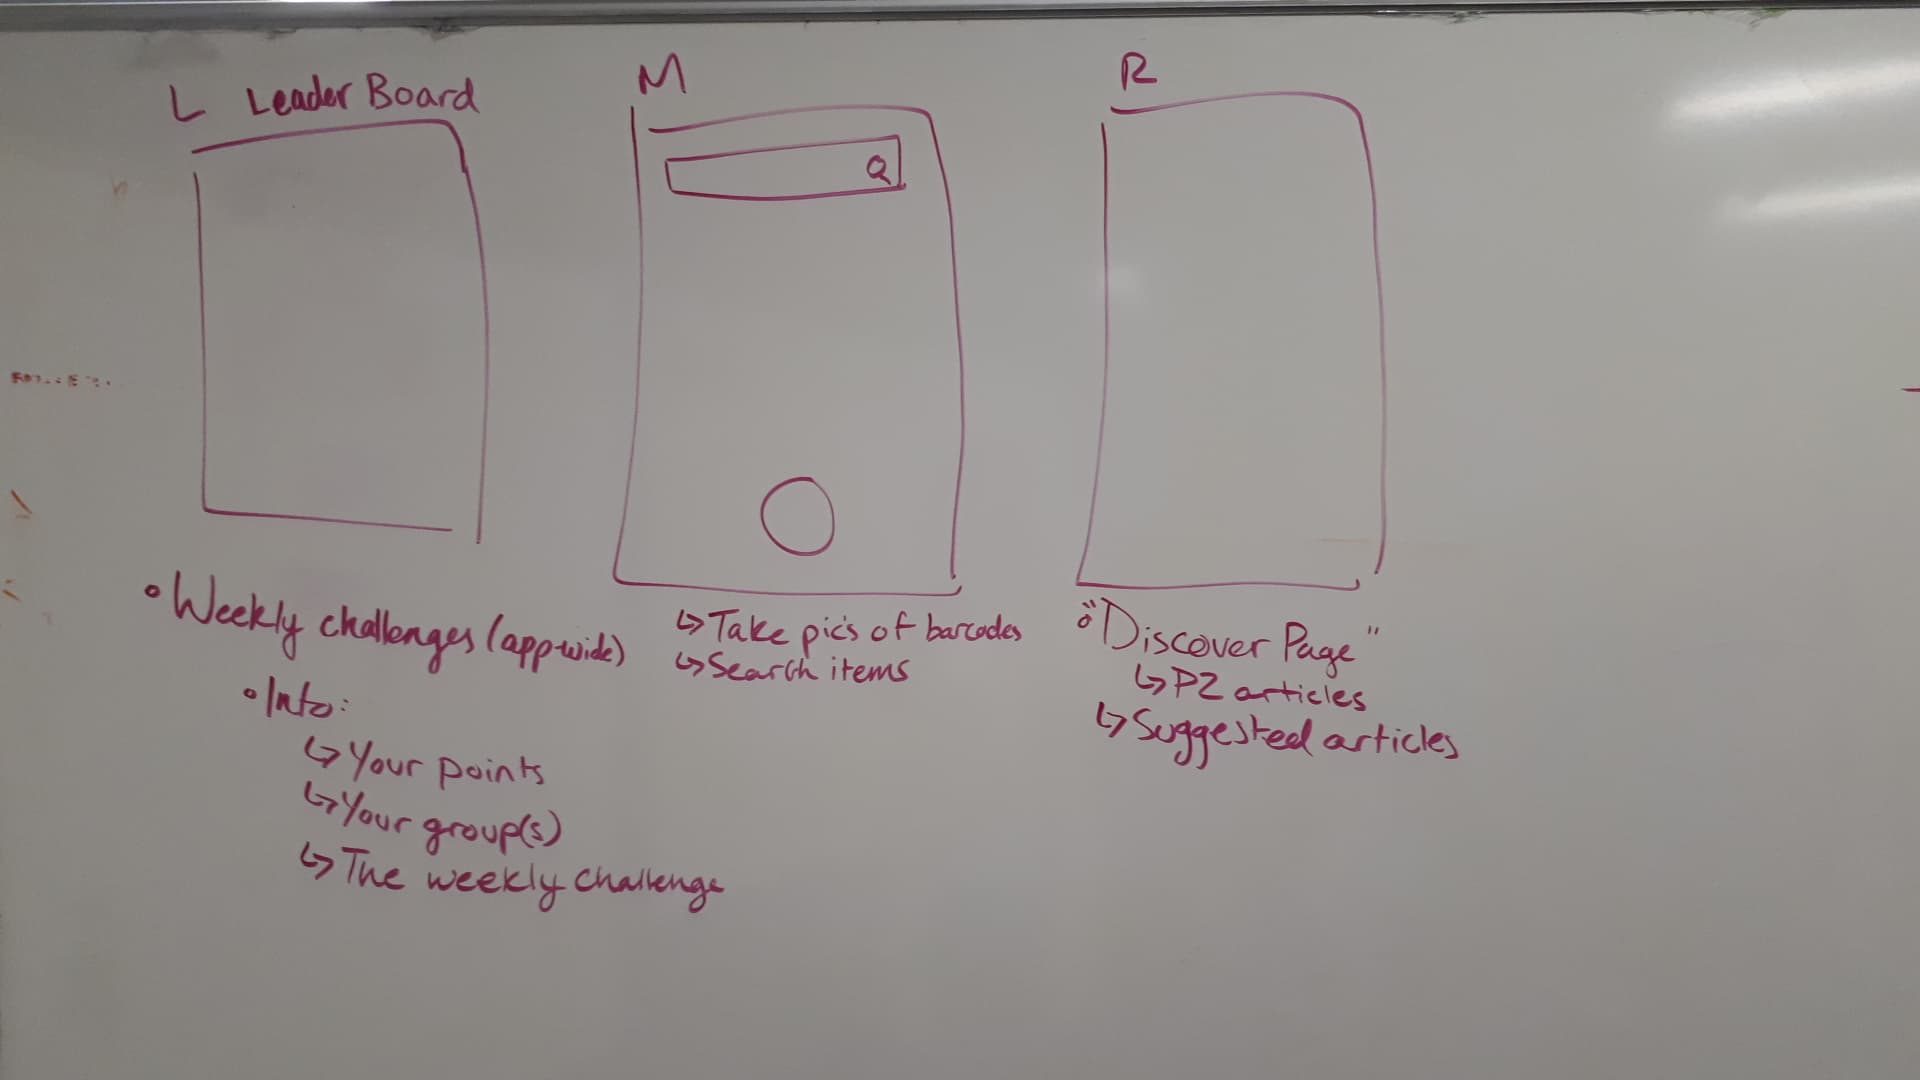 L Leader Board
M
R
• Weekly challenges (app-wide)
• Info:
↳ Your points
↳ Your group(s)
↳ The weekly challenge
↳ Take pics of barcodes
↳ Search items
• "Discover Page"
↳ PZ articles
↳ Suggested articles